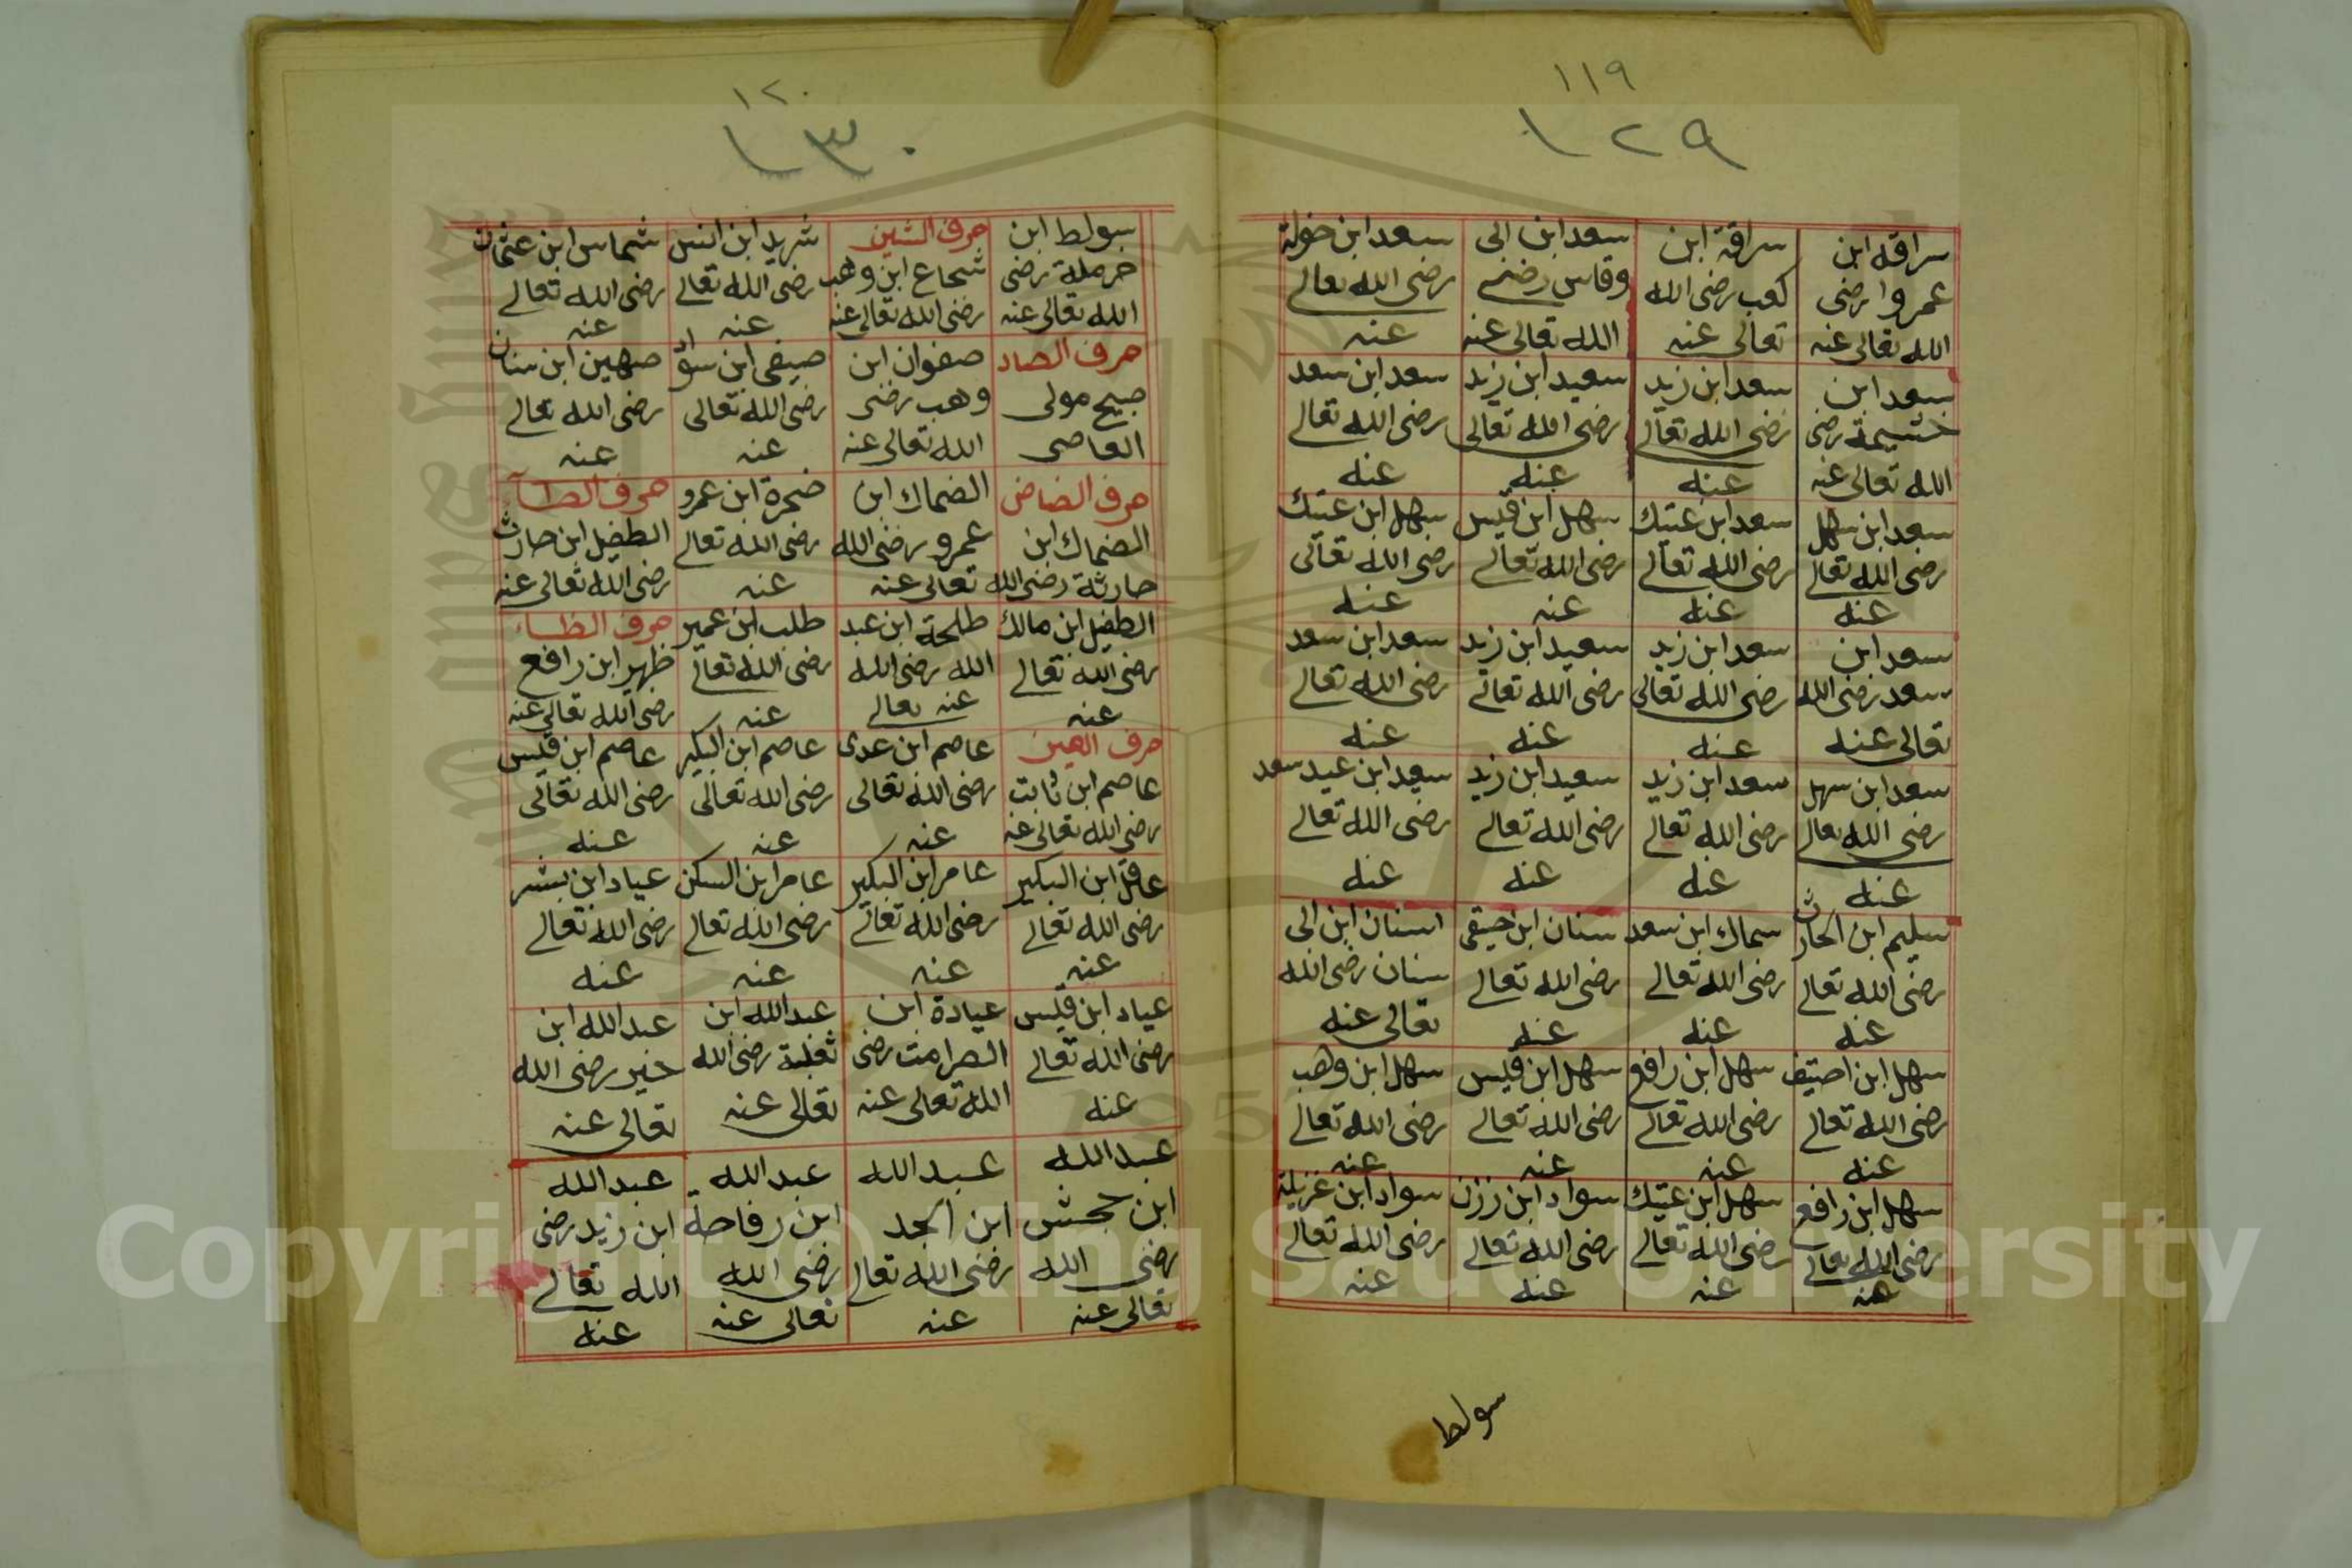 ١١٩
١٢٩
سراقه ابن عمروا رضى الله تعالى عنه
سراقة ابن كعب رضى الله تعالى عنه
سعد ابن ابى وقاس رضى الله تعالى عنه
سعد ابن خولة رضى الله تعالى عنه
سعد ابن خشيمة رضى الله تعالى عنه
سعد ابن زيد رضى الله تعالى عنه
سعيد ابن زيد رضى الله تعالى عنه
سعد ابن سعد رضى الله تعالى عنه
سعد ابن سهل رضى الله تعالى عنه
سعد ابن عتيك رضى الله تعالى عنه
سهل ابن قيس رضى الله تعالى عنه
سهل ابن عتيك رضى الله تعالى عنه
سعد ابن سعد رضى الله تعالى عنه
سعد ابن زيد رضى الله تعالى عنه
سعيد ابن زيد رضى الله تعالى عنه
سعد ابن سعد رضى الله تعالى عنه
سعد ابن سهل رضى الله تعالى عنه
سعد ابن زيد رضى الله تعالى عنه
سعيد ابن زيد رضى الله تعالى عنه
سعيد ابن عيد سعد رضى الله تعالى عنه
سليم ابن الحارث رضى الله تعالى عنه
سماك ابن سعد رضى الله تعالى عنه
سنان ابن صيفى رضى الله تعالى عنه
اسنان ابن ابى سنان رضى الله تعالى عنه
سهل ابن رضى الله تعالى عنه
سهل ابن رافع رضى الله تعالى عنه
سهل ابن قيس رضى الله تعالى عنه
سهل ابن وهب رضى الله تعالى عنه
سهل ابن رافع رضى الله تعالى عنه
سهل ابن عتيك رضى الله تعالى عنه
سواد ابن رزن رضى الله تعالى عنه
سواد ابن غزيلة رضى الله تعالى عنه
سولط
١٢٠
١٣٠
سولط ابن حرملة رضى الله تعالى عنه
حرف الشين
شجاع ابن وهب رضى الله تعالى عنه
شريد ابن انس رضى الله تعالى عنه
شماس ابن عثمان رضى الله تعالى عنه
حرف الصاد
صبيح مولى العاصى
صفوان ابن وهب رضى الله تعالى عنه
صيفى ابن سواد رضى الله تعالى عنه
صهين ابن سنان رضى الله تعالى عنه
حرف الضاض
الضحاك ابن حارثة رضى الله
الضحاك ابن عمرو رضى الله تعالى عنه
ضمرة ابن عمرو رضى الله تعالى عنه
حرف الطاء
الطفيل ابن حارث رضى الله تعالى عنه
الطفيل ابن مالك رضى الله تعالى عنه
طلحة ابن عبد الله رضى الله عنه تعالى
طلب ابن عمير رضى الله تعالى عنه
حرف الظاء
ظهير ابن رافع رضى الله تعالى عنه
حرف العين
عاصم ابن ثابت رضى الله تعالى عنه
عاصم ابن عدى رضى الله تعالى عنه
عاصم ابن البكير رضى الله تعالى عنه
عاصم ابن قيس رضى الله تعالى عنه
عاقل ابن البكير رضى الله تعالى عنه
عامر ابن البكير رضى الله تعالى عنه
عامر ابن السكن رضى الله تعالى عنه
عياد ابن بشر رضى الله تعالى عنه
عياد ابن قيس رضى الله تعالى عنه
عيادة ابن الصرامت رضى الله تعالى عنه
عبد الله ابن ثعلبة رضى الله تعالى عنه
عبد الله ابن خير رضى الله تعالى عنه
عبد الله ابن جحش رضى الله تعالى عنه
عبد الله ابن الجد رضى الله تعالى عنه
عبد الله ابن رفاحة رضى الله تعالى عنه
عبد الله ابن زيد رضى الله تعالى عنه
Copyright © King Saud University
1957